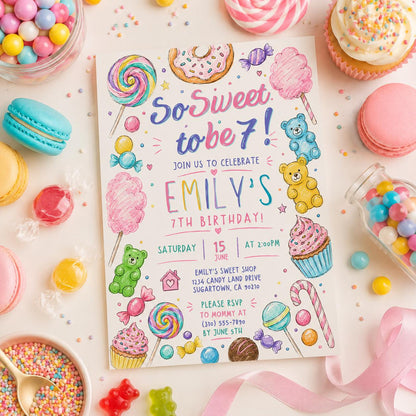 So Sweet
to be 7!
JOIN US TO CELEBRATE
EMILY'S
7TH BIRTHDAY!
SATURDAY | 15 JUNE | AT 2:00PM
EMILY'S SWEET SHOP
1234 CANDY LAND DRIVE
SUGARTOWN, CA 90210
PLEASE RSVP
TO MOMMY AT
(310) 555-7890
BY JUNE 5TH